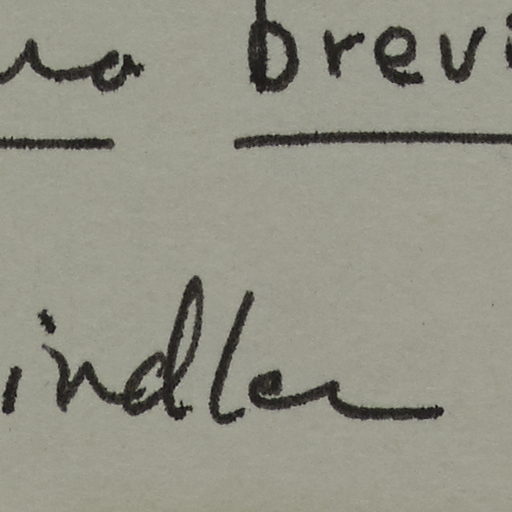 brevi
indler